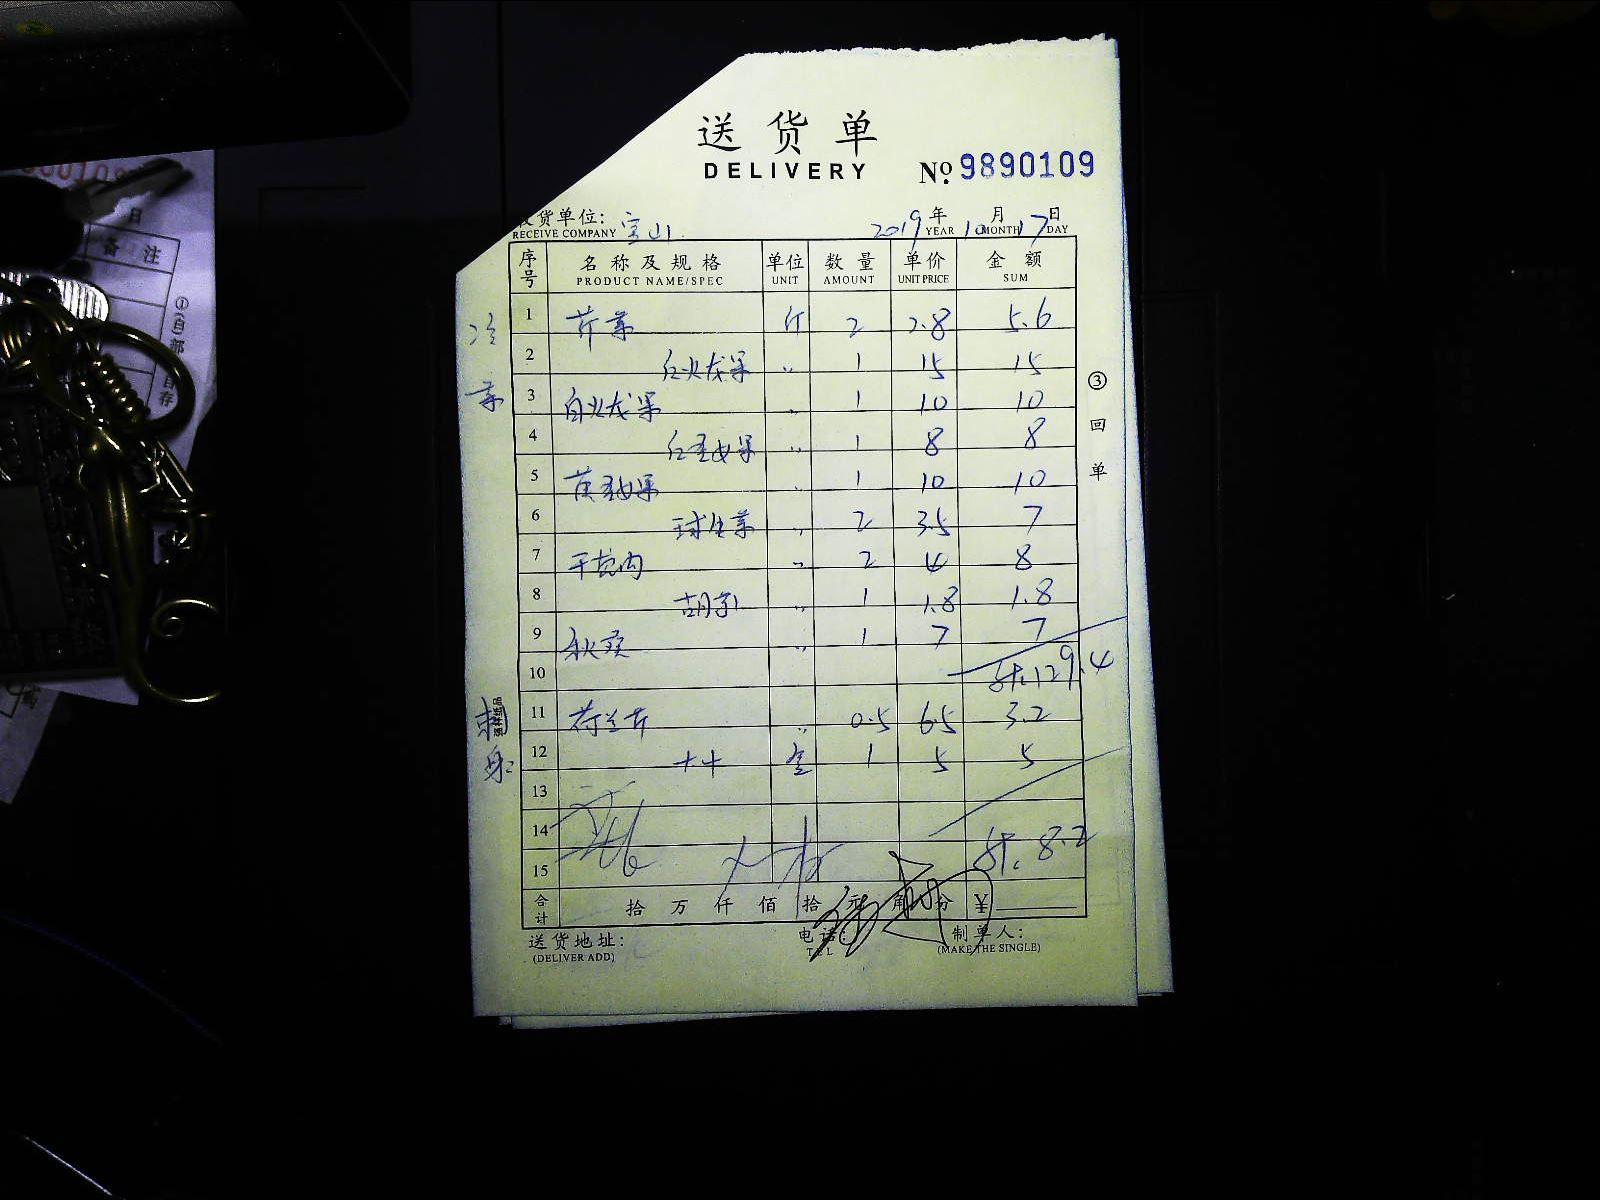 送货单
DELIVERY
No. 9890109
收货单位: 宝山
RECEIVE COMPANY
2019年10月17日
YEAR MONTH DAY
序号 名称及规格 单位 数量 单价 金额
PRODUCT NAME/SPEC UNIT AMOUNT UNIT PRICE SUM
冷菜
1 芹菜 斤 2 2.8 5.6
2 红火龙果 〃 1 15 15
3 白火龙果 〃 1 10 10
4 红圣女果 〃 1 8 8
5 黄圣女果 〃 1 10 10
6 球生菜 〃 2 3.5 7
7 〃 2 4 8
8 〃 1 1.8 1.8
9 秋葵 〃 1 7 7
10 计.129.4
刺身
11 荷兰芹 〃 0.5 6.5 3.2
12 大叶 盒 1 5 5
13
14
15 计. 8.2
合计 拾 万 仟 佰 拾 元 角 分 ¥
送货地址: 电话: 制单人:
(DELIVER ADD) TEL (MAKE THE SINGLE)
③回单
备注
日